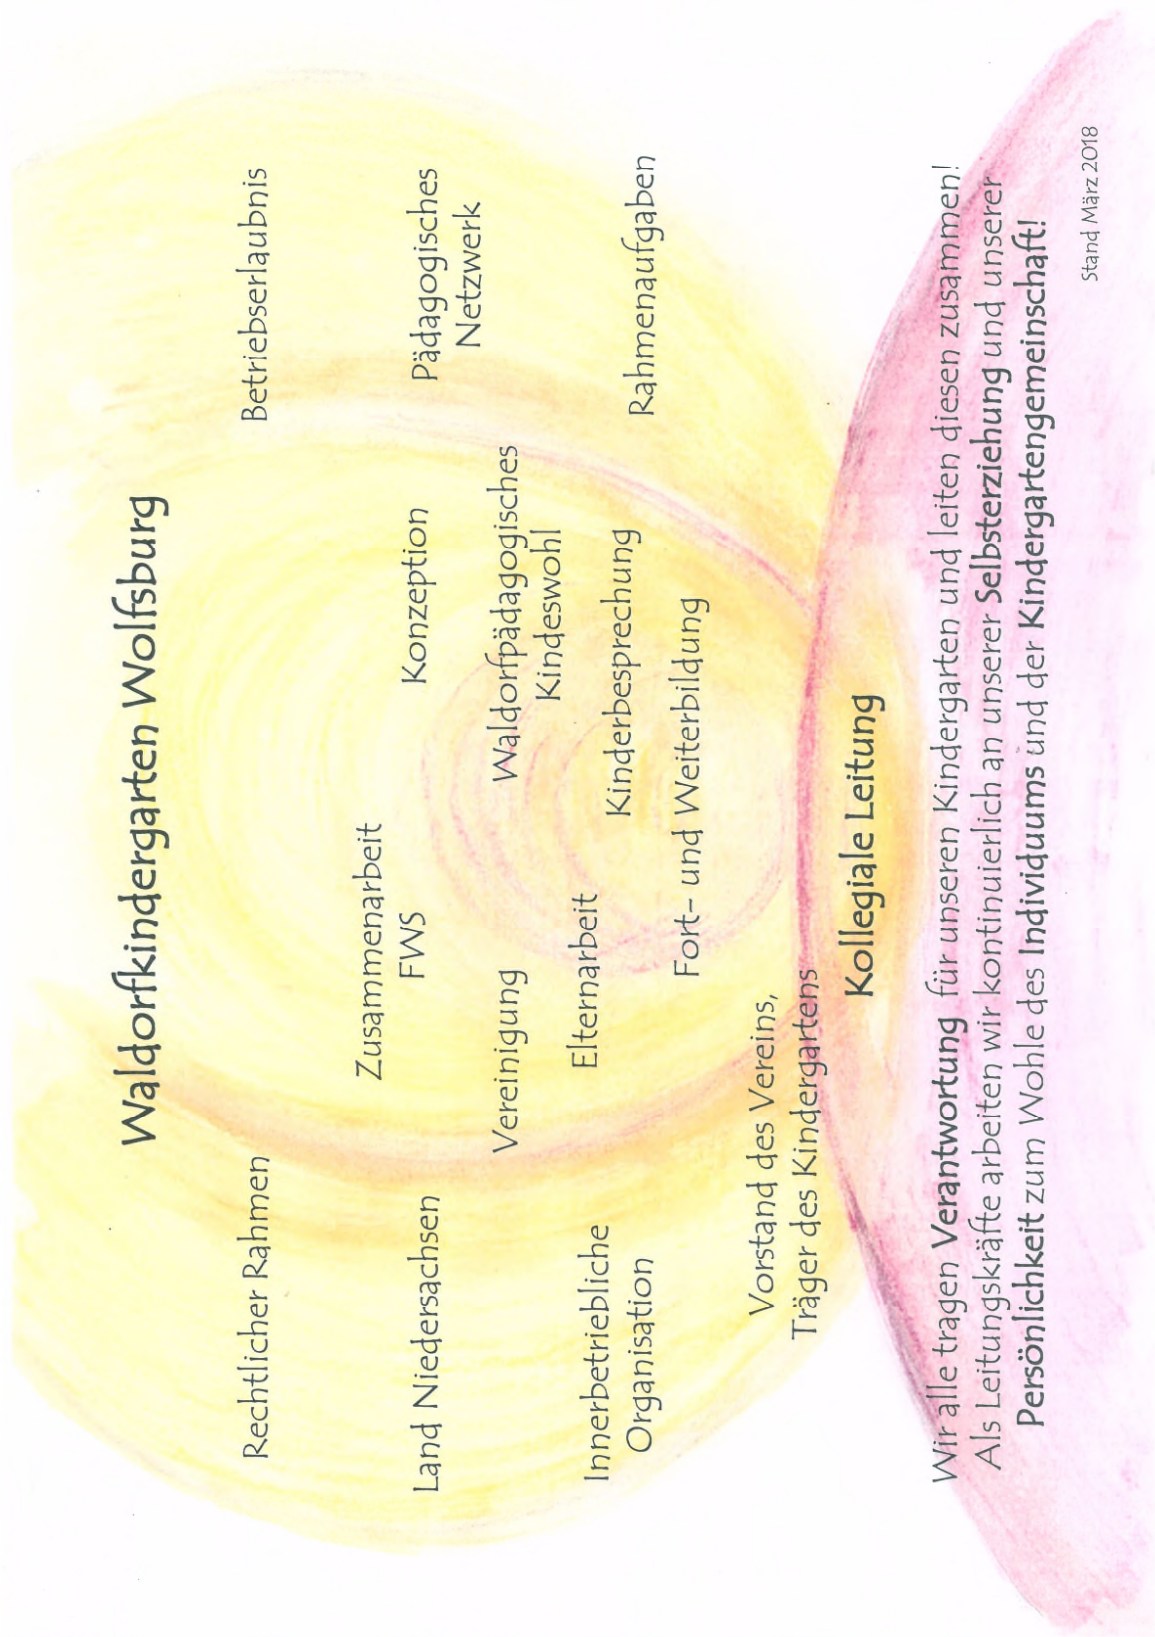 Waldorfkindergarten Wolfsburg
Rechtlicher Rahmen
Betriebserlaubnis
Zusammenarbeit
FWS
Konzeption
Land Niedersachsen
Pädagogisches
Netzwerk
Vereinigung
Waldorfpädagogisches
Kindeswohl
Elternarbeit
Kinderbesprechung
Innerbetriebliche
Organisation
Rahmenaufgaben
Fort- und Weiterbildung
Vorstand des Vereins,
Träger des Kindergartens
Kollegiale Leitung
Wir alle tragen Verantwortung für unseren Kindergarten und leiten diesen zusammen!
Als Leitungskräfte arbeiten wir kontinuierlich an unserer Selbsterziehung und unserer
Persönlichkeit zum Wohle des Individuums und der Kindergartengemeinschaft!
Stand März 2018